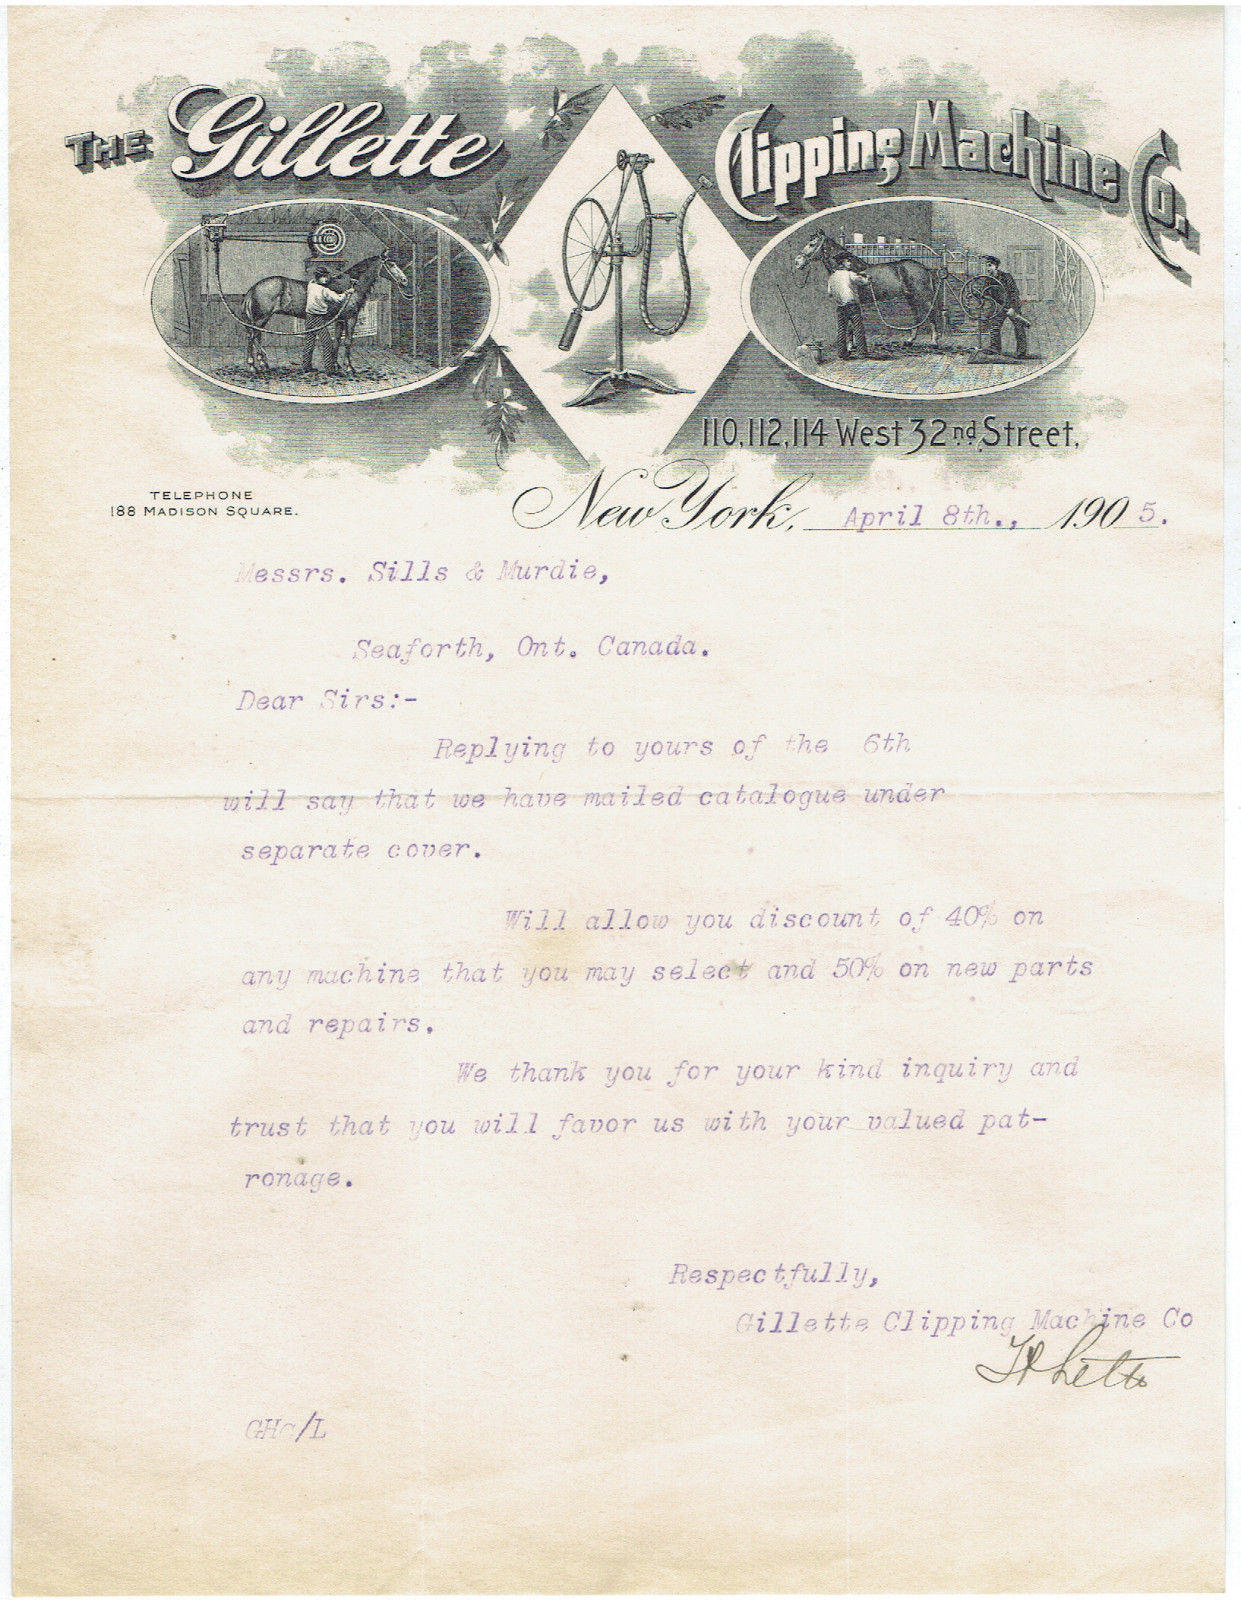 THE Gillette Clipping Machine Co.
110, 112, 114 West 32nd Street.
TELEPHONE
188 MADISON SQUARE.
New York, April 8th., 1905.
Messrs. Sills & Murdie,
Seaforth, Ont. Canada.
Dear Sirs:-
Replying to yours of the 6th
will say that we have mailed catalogue under
separate cover.
Will allow you discount of 40% on
any machine that you may select and 50% on new parts
and repairs.
We thank you for your kind inquiry and
trust that you will favor us with your valued pat-
ronage.
Respectfully,
Gillette Clipping Machine Co
GHC/L